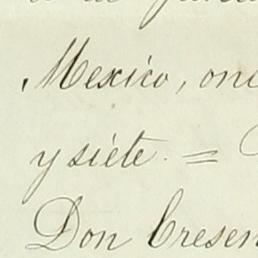 Mexico, one
y siete. =
Don Cresen